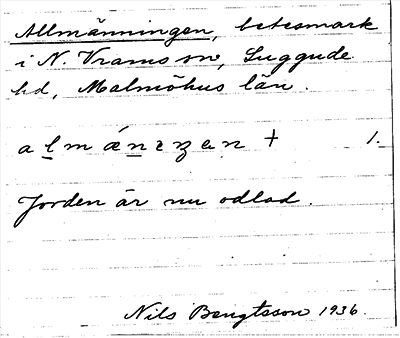 Allmänningen, betesmark
i N. Vrams sn, Luggude
hd, Malmöhus län.
Jorden är nu odlad.
Nils Bengtsson 1936